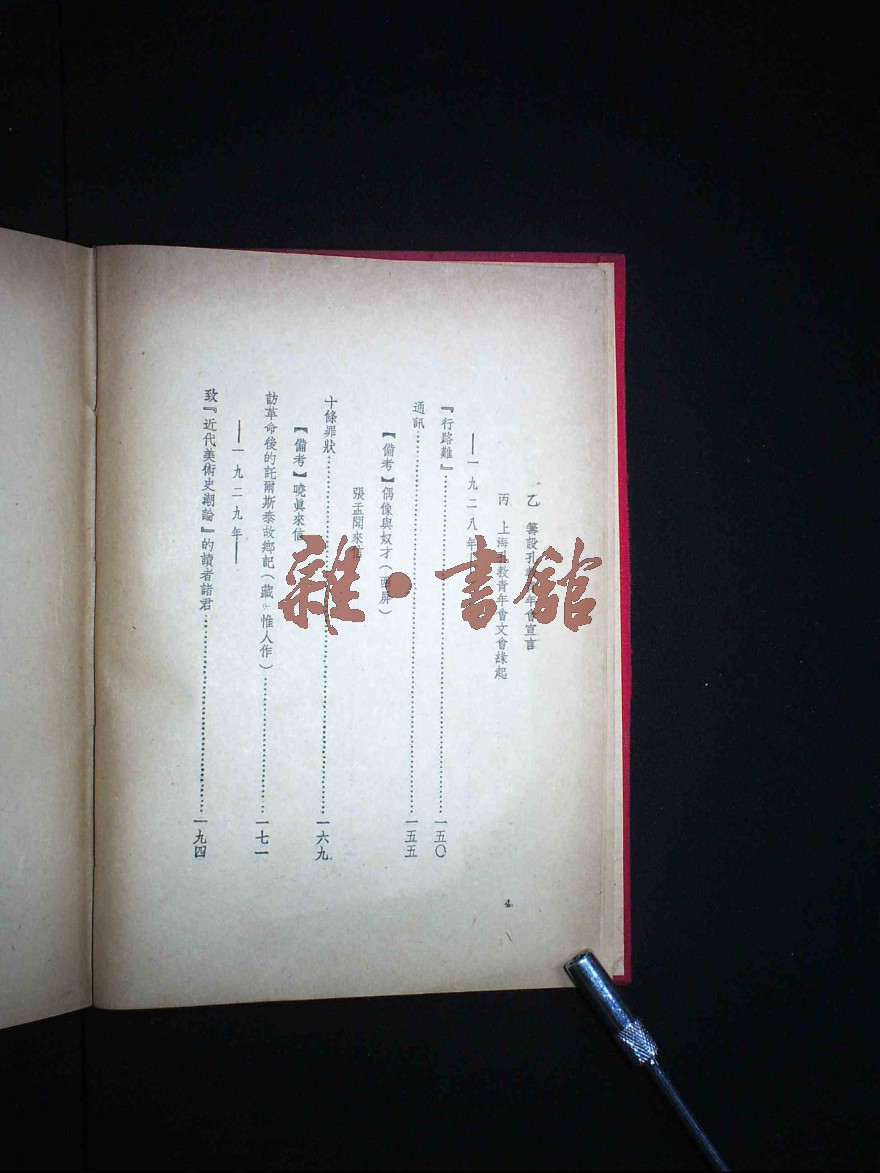 乙　籌設孔教青年會宣言
丙　上海孔教青年會文會緣起
——一九二八年——
『行路難』……一五〇
通訊……一五五
【備考】偶像與奴才（西屏）
張孟聞來信
十條罪狀……一六九
【備考】曉眞來信
訪革命後的託爾斯泰故鄉記（藏　惟人作）……一七一
——一九二九年——
致『近代美術史潮論』的讀者諸君……一九四
4
雜·書館